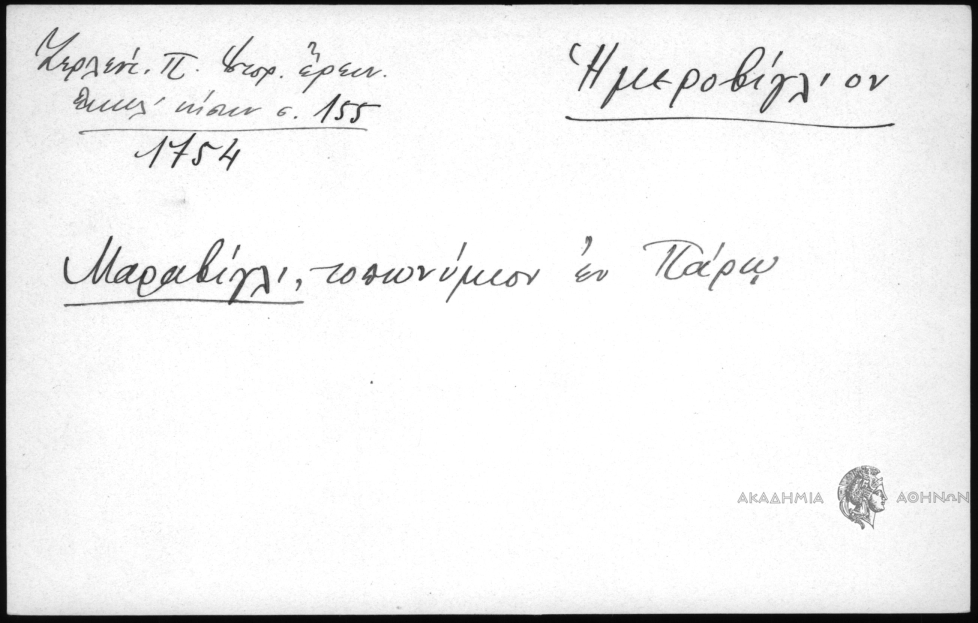 Ζερλέντ. Π. Ἱστορ. ἔρευν.
ἐκκλ. νήσων σ. 155
1754
Ἡμεροβίγλιον
Μαραβίγλι, τοπωνύμιον ἐν Πάρῳ
ΑΚΑΔΗΜΙΑ ΑΘΗΝΩΝ